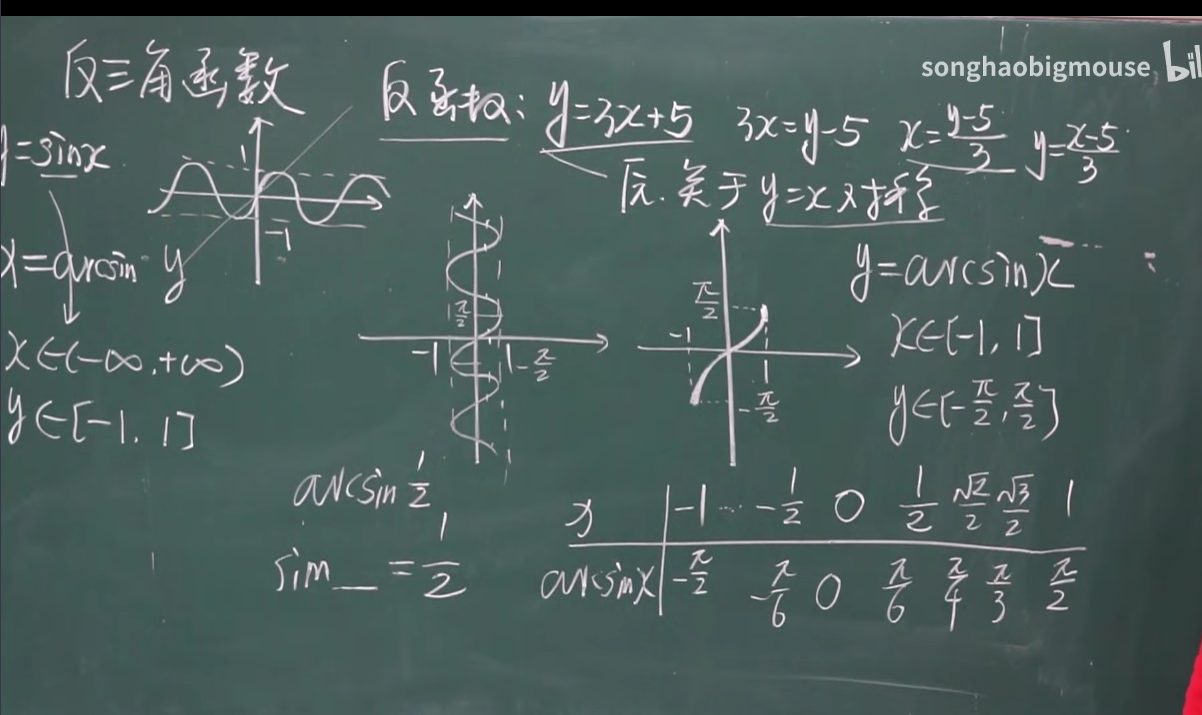 songhaobigmouse bil
反三角函数
反函数: y=3x+5 3x=y-5 x=\frac{y-5}{3} y=\frac{x-5}{3}
反. 关于y=x对称
y=sinx
1
-1
x=arcsin y
x∈(-∞,+∞)
y∈[-1,1]
π/2
-1 1 -π/2
π/2
-1 1
-π/2
y=arcsinx
x∈[-1,1]
y∈[-π/2,π/2]
arcsin 1/2
sin__=1/2
x -1 ... -1/2 0 1/2 √2/2 √3/2 1
arcsinx -π/2 -π/6 0 π/6 π/4 π/3 π/2